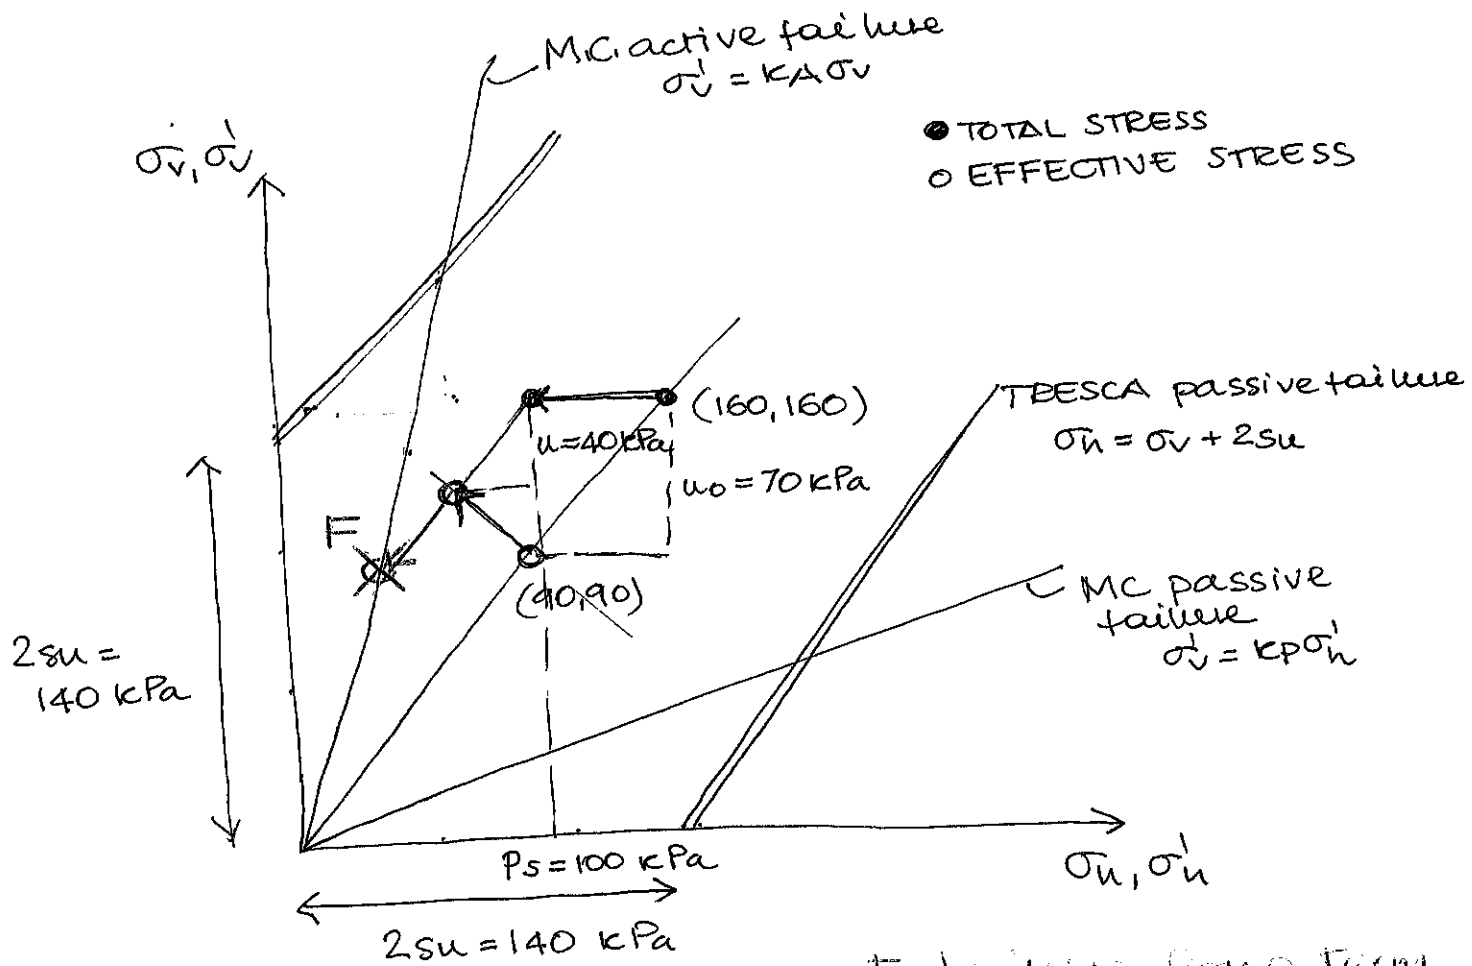 M.C. active failure
σ'v = KA σv
● TOTAL STRESS
○ EFFECTIVE STRESS
σv, σ'v
(160,160)
u=40kPa
u₀=70kPa
TRESCA passive failure
σh = σv + 2su
F
(90,90)
MC passive
failure
σ'v = KP σ'h
2su =
140 kPa
Ps=100 kPa
σh, σ'h
2su=140 kPa